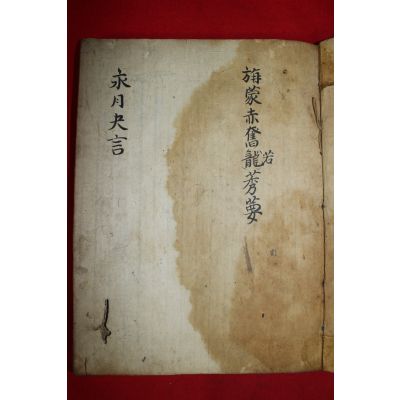 旃蒙赤奮龍若蓂夢
永月夬言